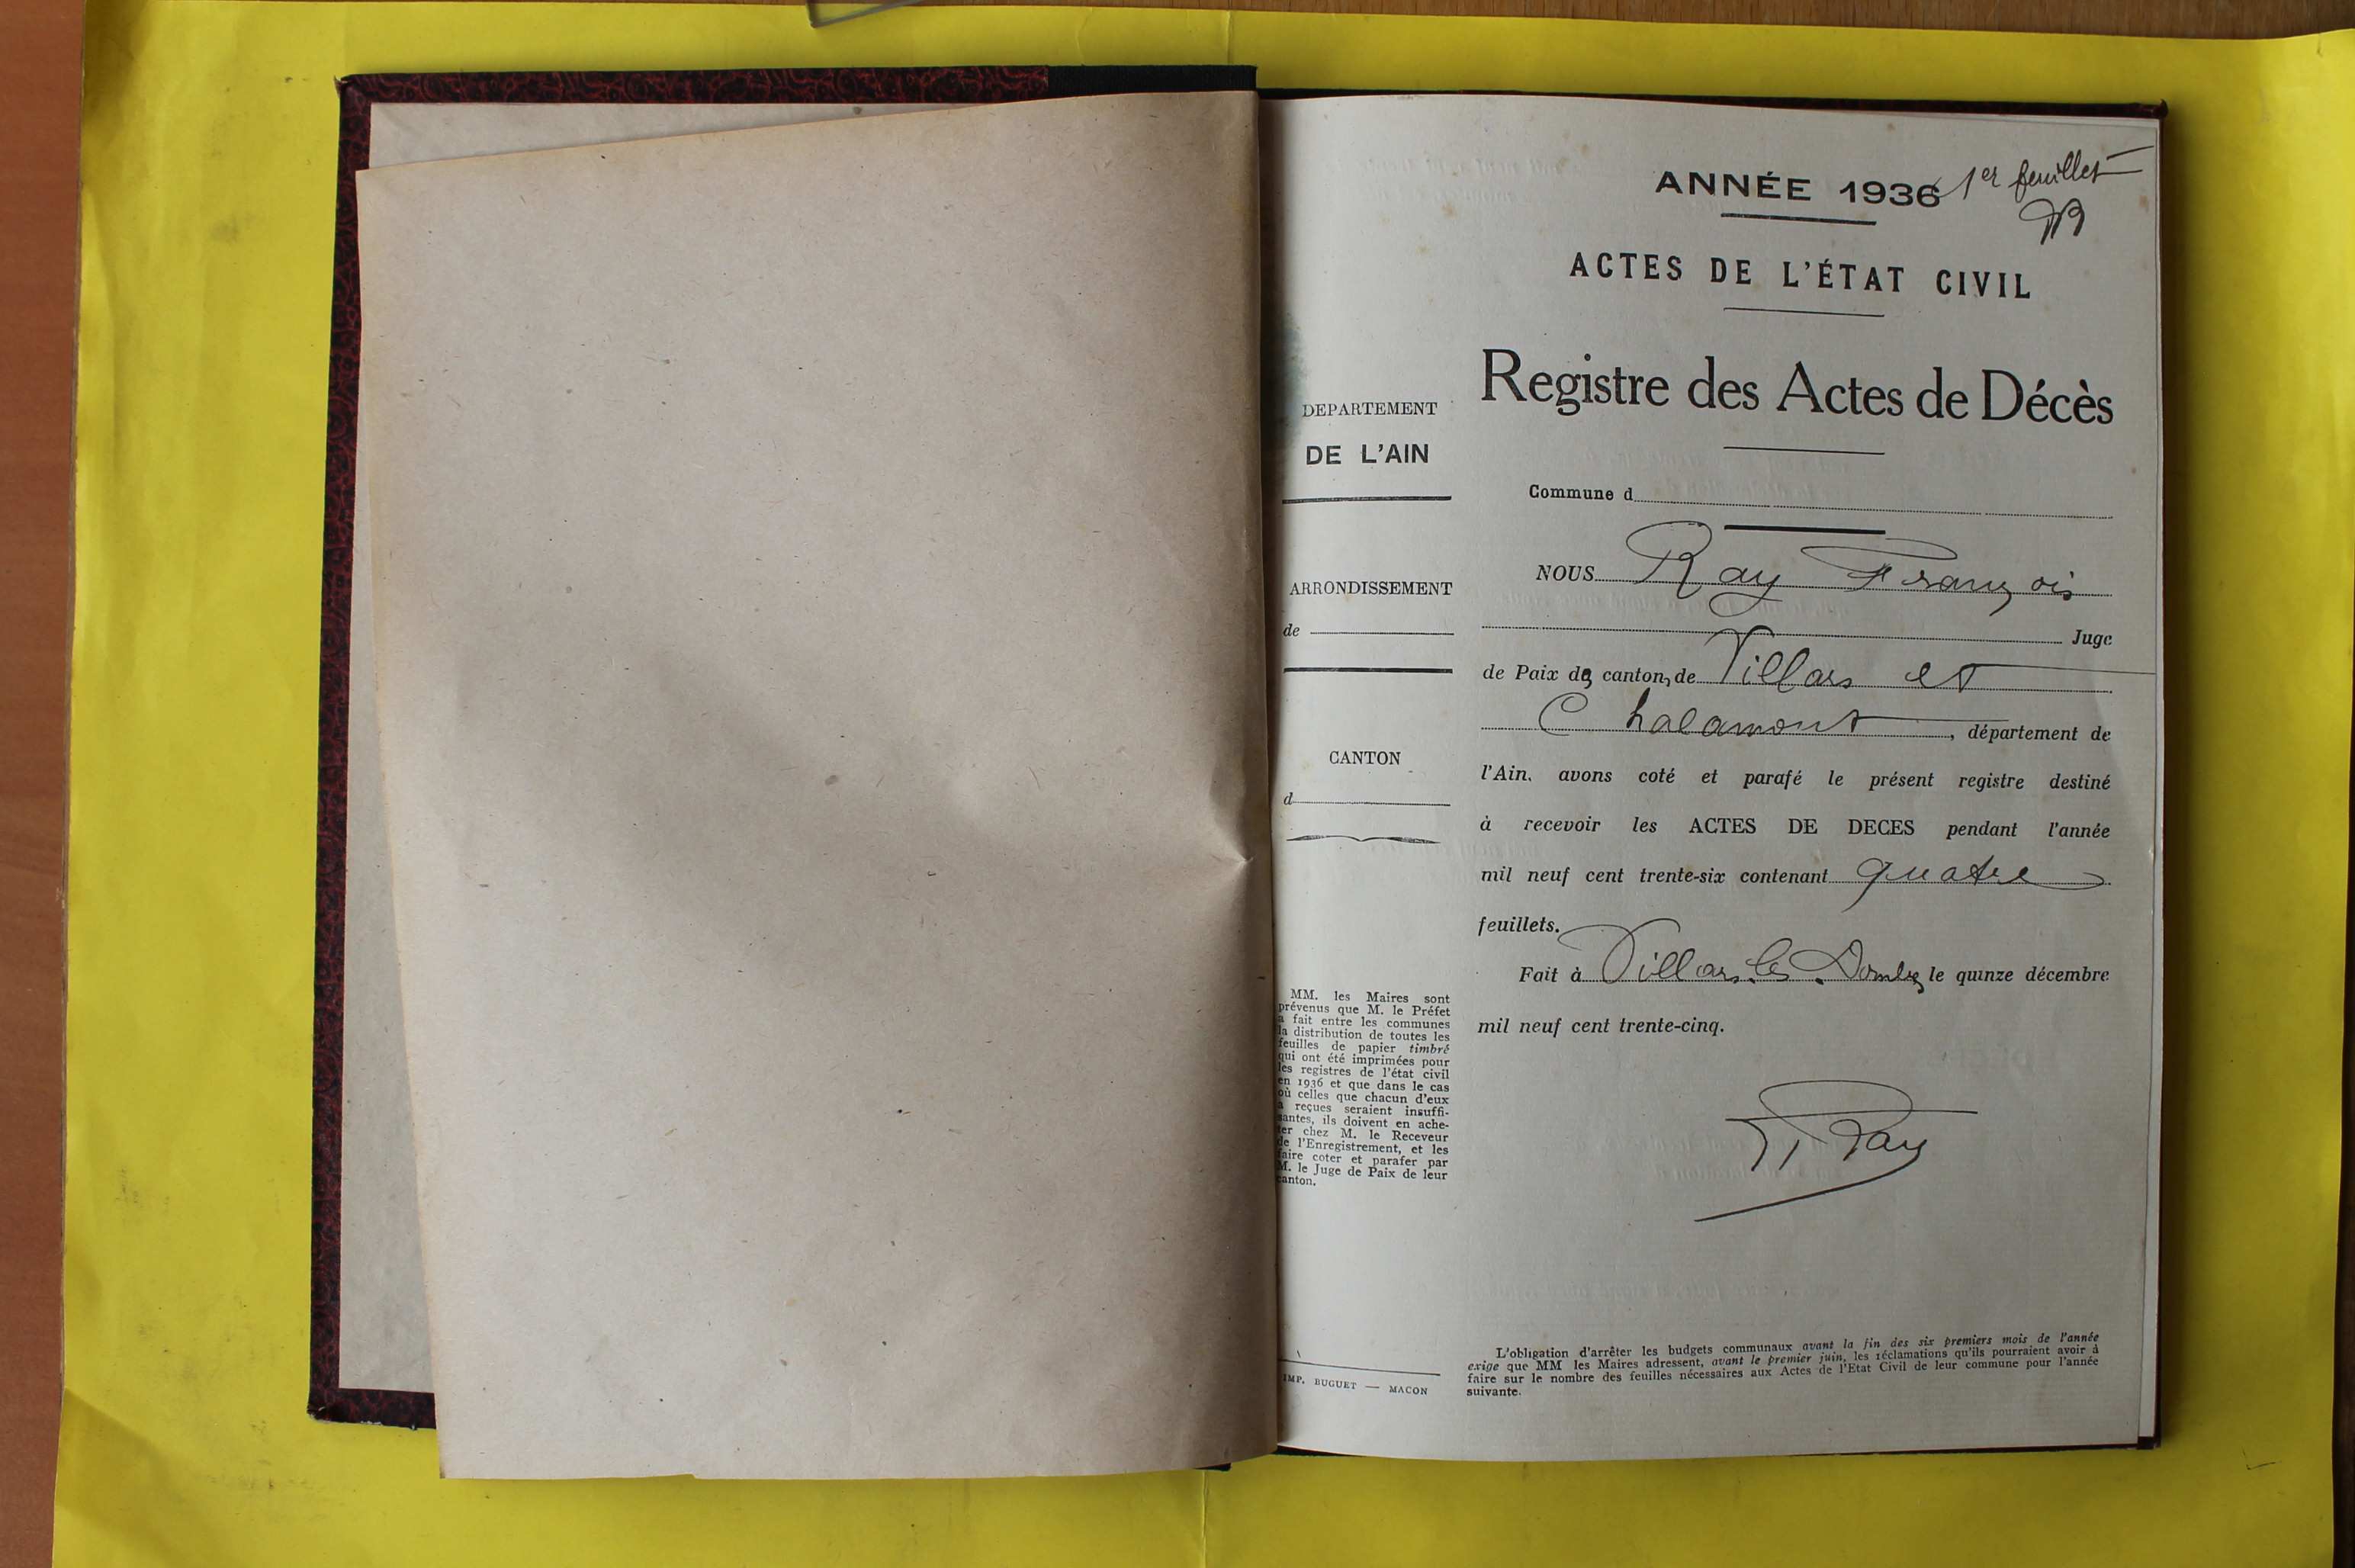 ANNÉE 1936 1er feuillet
ACTES DE L'ÉTAT CIVIL
Registre des Actes de Décès
Commune d
NOUS Ray François
Juge
de Paix des cantons de Villars et
Chalamont, département de
l'Ain, avons coté et parafé le présent registre destiné
à recevoir les ACTES DE DECES pendant l'année
mil neuf cent trente-six contenant quatre
feuillets.
Fait à Villars les Dombes le quinze décembre
mil neuf cent trente-cinq.
Ray
L'obligation d'arrêter les budgets communaux avant la fin des six premiers mois de l'année
exige que MM les Maires adressent, avant le premier juin, les réclamations qu'ils pourraient avoir à
faire sur le nombre des feuilles nécessaires aux Actes de l'Etat Civil de leur commune pour l'année
suivante.
DEPARTEMENT
DE L'AIN
ARRONDISSEMENT
de
CANTON
d
MM. les Maires sont
prévenus que M. le Préfet
a fait entre les communes
la distribution de toutes les
feuilles de papier timbré
qui ont été imprimées pour
les registres de l'état civil
en 1936 et que dans le cas
où celles que chacun d'eux
a reçues seraient insuffi-
santes, ils doivent en ache-
ter chez M. le Receveur
de l'Enregistrement, et les
faire coter et parafer par
M. le Juge de Paix de leur
canton.
IMP. BUGUET — MACON